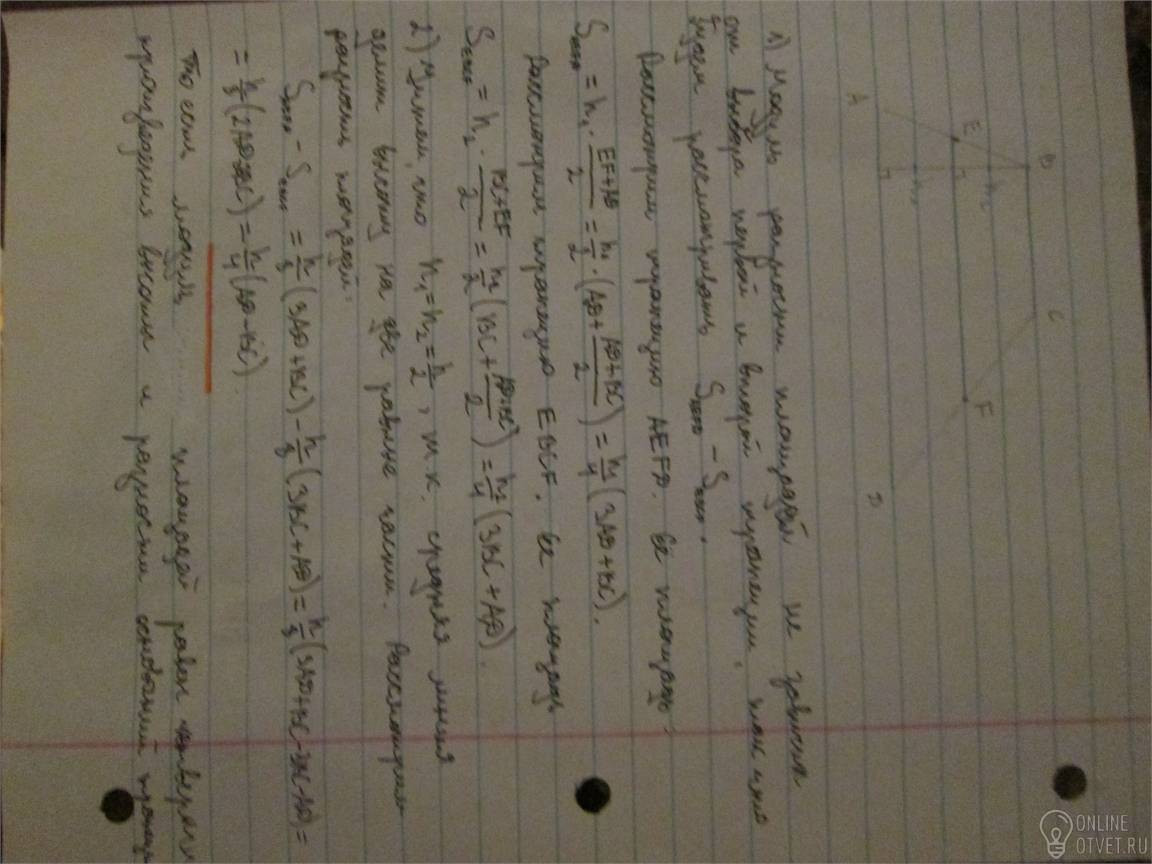 A E B C F D
h₁ h₂
1) Модуль разности площадей не зависит
от выбора первой и второй трапеции, так что
будем рассматривать S_AEFD − S_EBCF.
Рассмотрим трапецию AEFD. Её площадь:
S_AEFD = h₁ · (EF+AD)/2 = h₁/2 · (AD + (AD+BC)/2) = h₁/4 (3AD+BC).
Рассмотрим трапецию EBCF. Её площадь
S_EBCF = h₂ · (BC+EF)/2 = h₂/2 (BC + (AD+BC)/2) = h₂/4 (3BC+AD).
2) Учтем, что h₁=h₂=h/2, т.к. средняя линия
делит высоту на две равные части. Рассмотрим
разность площадей:
S_AEFD − S_EBCF = h/8 (3AD+BC) − h/8 (3BC+AD) = h/8 (3AD+BC−3BC−AD) =
= (2AD−2BC) = h/4 (AD−BC).
То есть модуль площадей равен четверти
произведения высоты и разности оснований
ONLINE
OTVET.RU